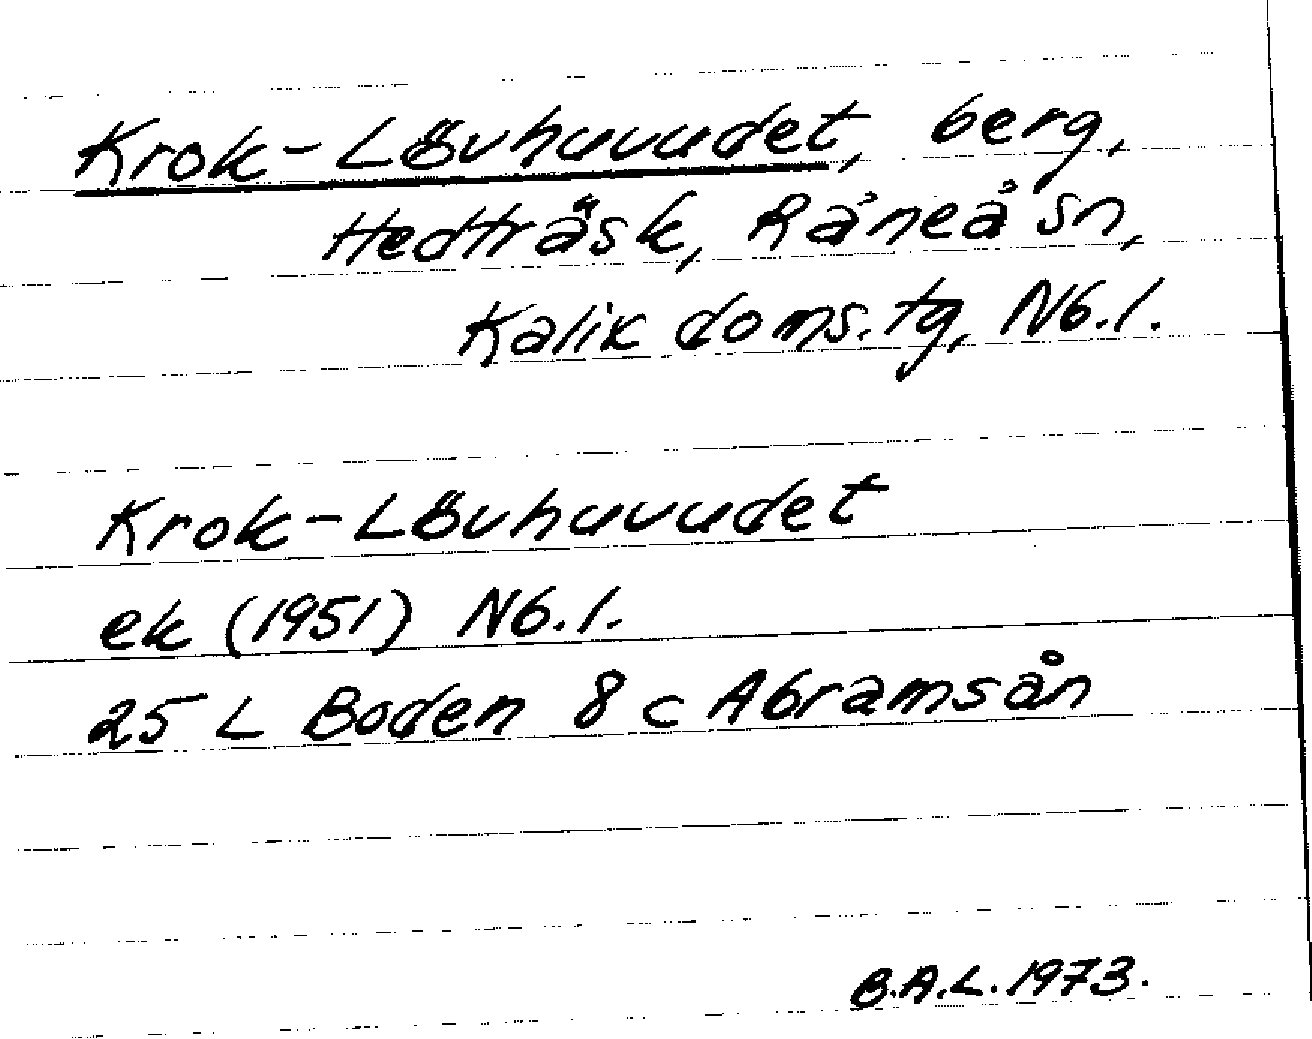 Krok-Lövhuvudet, berg,
Hedträsk, Råneå sn,
Kalix doms. tg, Nb. l.
Krok-Lövhuvudet
ek (1951) Nb. l.
25 L Boden 8 c Abramsån
B.A.L. 1973.